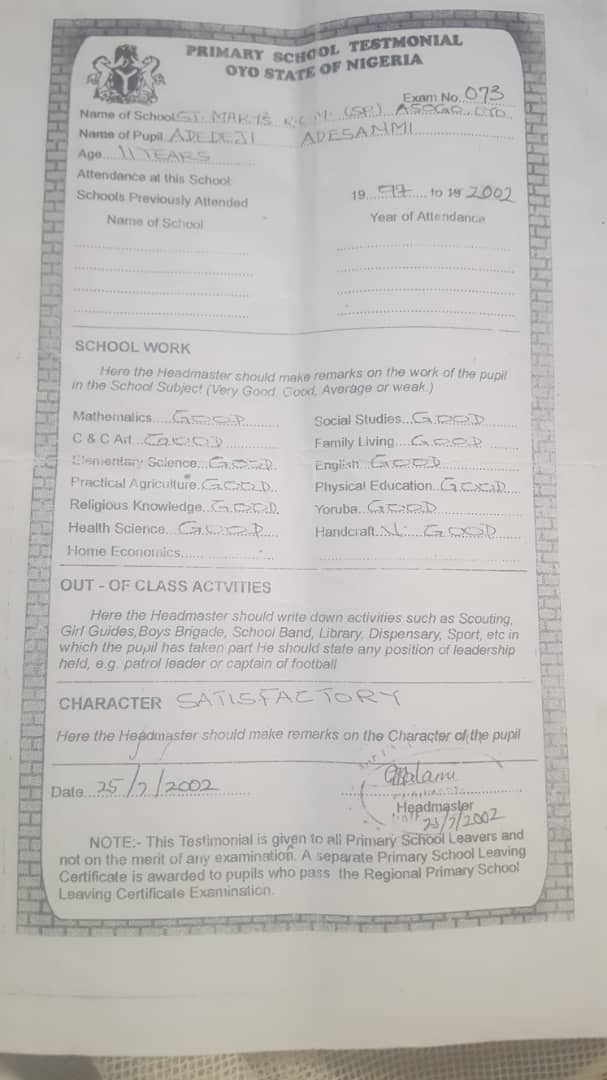 PRIMARY SCHOOL TESTMONIAL
OYO STATE OF NIGERIA
Exam No. 073
Name of School ST. MARY'S R.C.M. (SP.) ASOGO, OYO
Name of Pupil ADEDEJI ADESANMI
Age 11 YEARS
Attendance at this School:
Schools Previously Attended 19 97 to 19 2002
Name of School Year of Attendance
SCHOOL WORK
Here the Headmaster should make remarks on the work of the pupil
in the School Subject (Very Good, Good, Average or weak.)
Mathematics GOOD Social Studies GOOD
C & C Art GOOD Family Living GOOD
Elementary Science GOOD English GOOD
Practical Agriculture GOOD Physical Education GOOD
Religious Knowledge GOOD Yoruba GOOD
Health Science GOOD Handcraft V. GOOD
Home Economics
OUT - OF CLASS ACTVITIES
Here the Headmaster should write down activities such as Scouting,
Girl Guides,Boys Brigade, School Band, Library, Dispensary, Sport, etc in
which the pupil has taken part He should state any position of leadership
held, e.g. patrol leader or captain of football
CHARACTER SATISFACTORY
Here the Headmaster should make remarks on the Character of the pupil
Date 25/7/2002
Headmaster
25/7/2002
NOTE:- This Testimonial is given to all Primary School Leavers and
not on the merit of any examination. A separate Primary School Leaving
Certificate is awarded to pupils who pass the Regional Primary School
Leaving Certificate Examination.